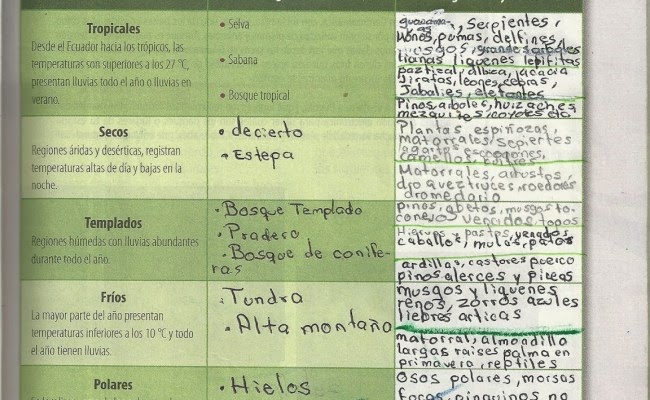 Tropicales
Desde el Ecuador hacia los trópicos, las
temperaturas son superiores a los 27 °C,
presentan lluvias todo el año o lluvias en
verano.
• Selva
• Sabana
• Bosque tropical
Serpientes,
Monos, pumas, delfines,
grandes arboles
lianas liquenes
jacacia
Jirafas, leones, cebras,
Jabalies, elefantes
Pinos, arboles, huizaches
mezquites, coyotes
Secos
Regiones áridas y desérticas, registran
temperaturas altas de día y bajas en la
noche.
• decierto
• Estepa
Plantas espiñozas,
matorrales, sepiertes
camellos,
Matorrales, arbustos,
roedores
dromedario
Templados
Regiones húmedas con lluvias abundantes
durante todo el año.
• Bosque Templado
• Pradero
• Bosque de conife-
ras
pinos, abetos, musgos
conejos venados
pastos, venados
caballos, mulas, patos
ardillas, castores puerco
pinos alerces y piceas
Fríos
La mayor parte del año presentan
temperaturas inferiores a los 10 °C y todo
el año tienen lluvias.
• Tundra
• Alta montaño
musgos y liquenes
renos, zorros azules
liebres articas
matorral, almondilla
largas raises palma en
primavera, reptiles
Polares
• Hielos
Osos polares, morsas
focas, pinguinos no